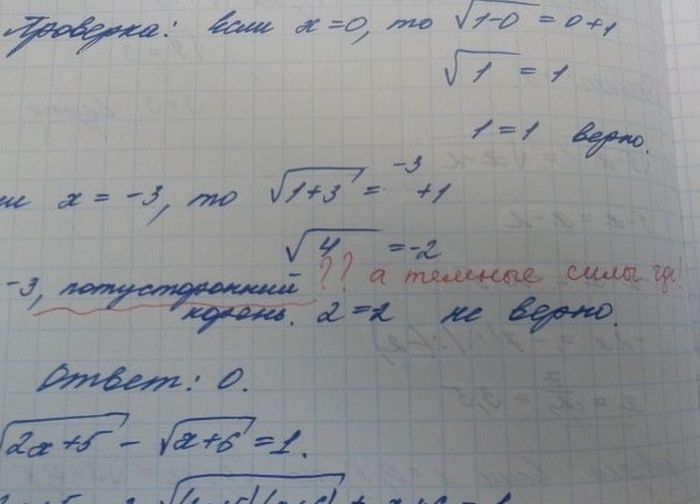 Проверка: если x=0, то √1-0 = 0+1
√1 = 1
1=1 верно.
x = -3, то √1+3 = -3+1
√4 = -2
-3, потусторонний ?? а темные силы где!
корень. 2=2 не верно.
Ответ: 0.
√2x+5 - √x+6 = 1.